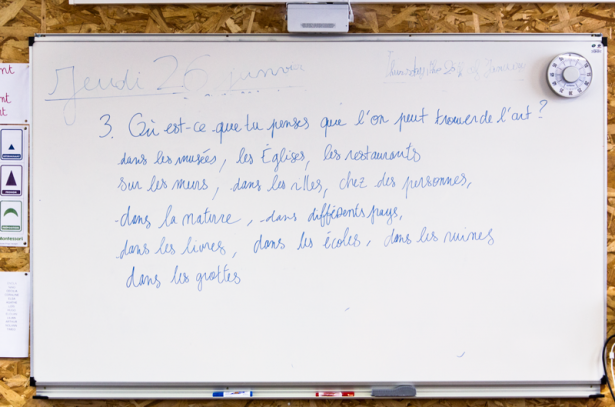 Jeudi 26 janvier
3. Où est-ce que tu penses que l'on peut trouver de l'art ?
dans les musées, les Églises, les restaurants
sur les murs, dans les villes, chez des personnes,
dans la nature, dans différents pays,
dans les livres, dans les écoles, dans les ruines
dans les grottes